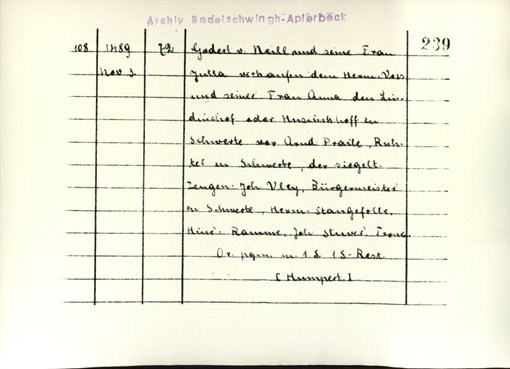 Archiv Bodelschwingh-Aplerbeck
239
108 1489 72 Godert v. Neill und seine Frau
Nov 3. Jutta verkaufen dem Herm. Voss
und seiner Frau Anna den Lin-
dinchof oder Husinkhoff zu
Schwerte vor Arnd Praile, Rich-
ter in Schwerte, der siegelt.
Zeugen: Joh Vley, Bürgermeister
in Schwerte, Herm. Stangefolle,
Hinr. Ramme, Joh Stuver, Frone
Or. pgm. m. 1 S. (S-Rest
(Humpert.)